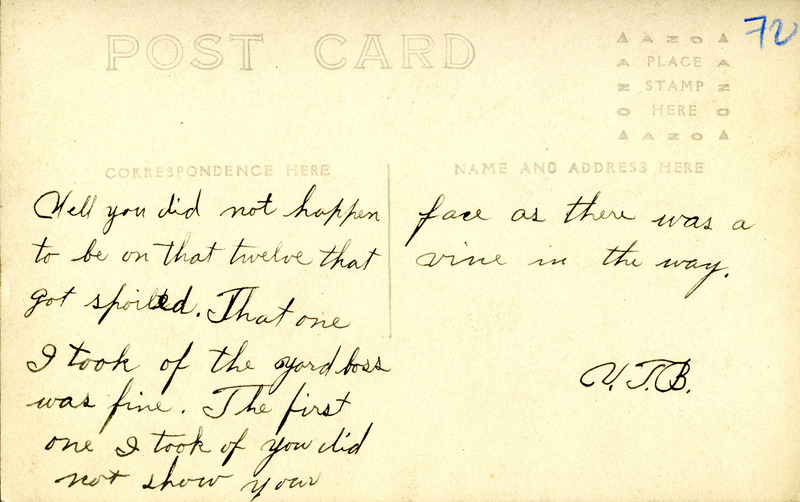 POST CARD
72
AZO
PLACE
STAMP
HERE
AZO
CORRESPONDENCE HERE
NAME AND ADDRESS HERE
Well you did not happen
to be on that twelve that
got spoiled. That one
I took of the yard boss
was fine. The first
one I took of you did
not show your
face as there was a
vine in the way.
V.T.B.